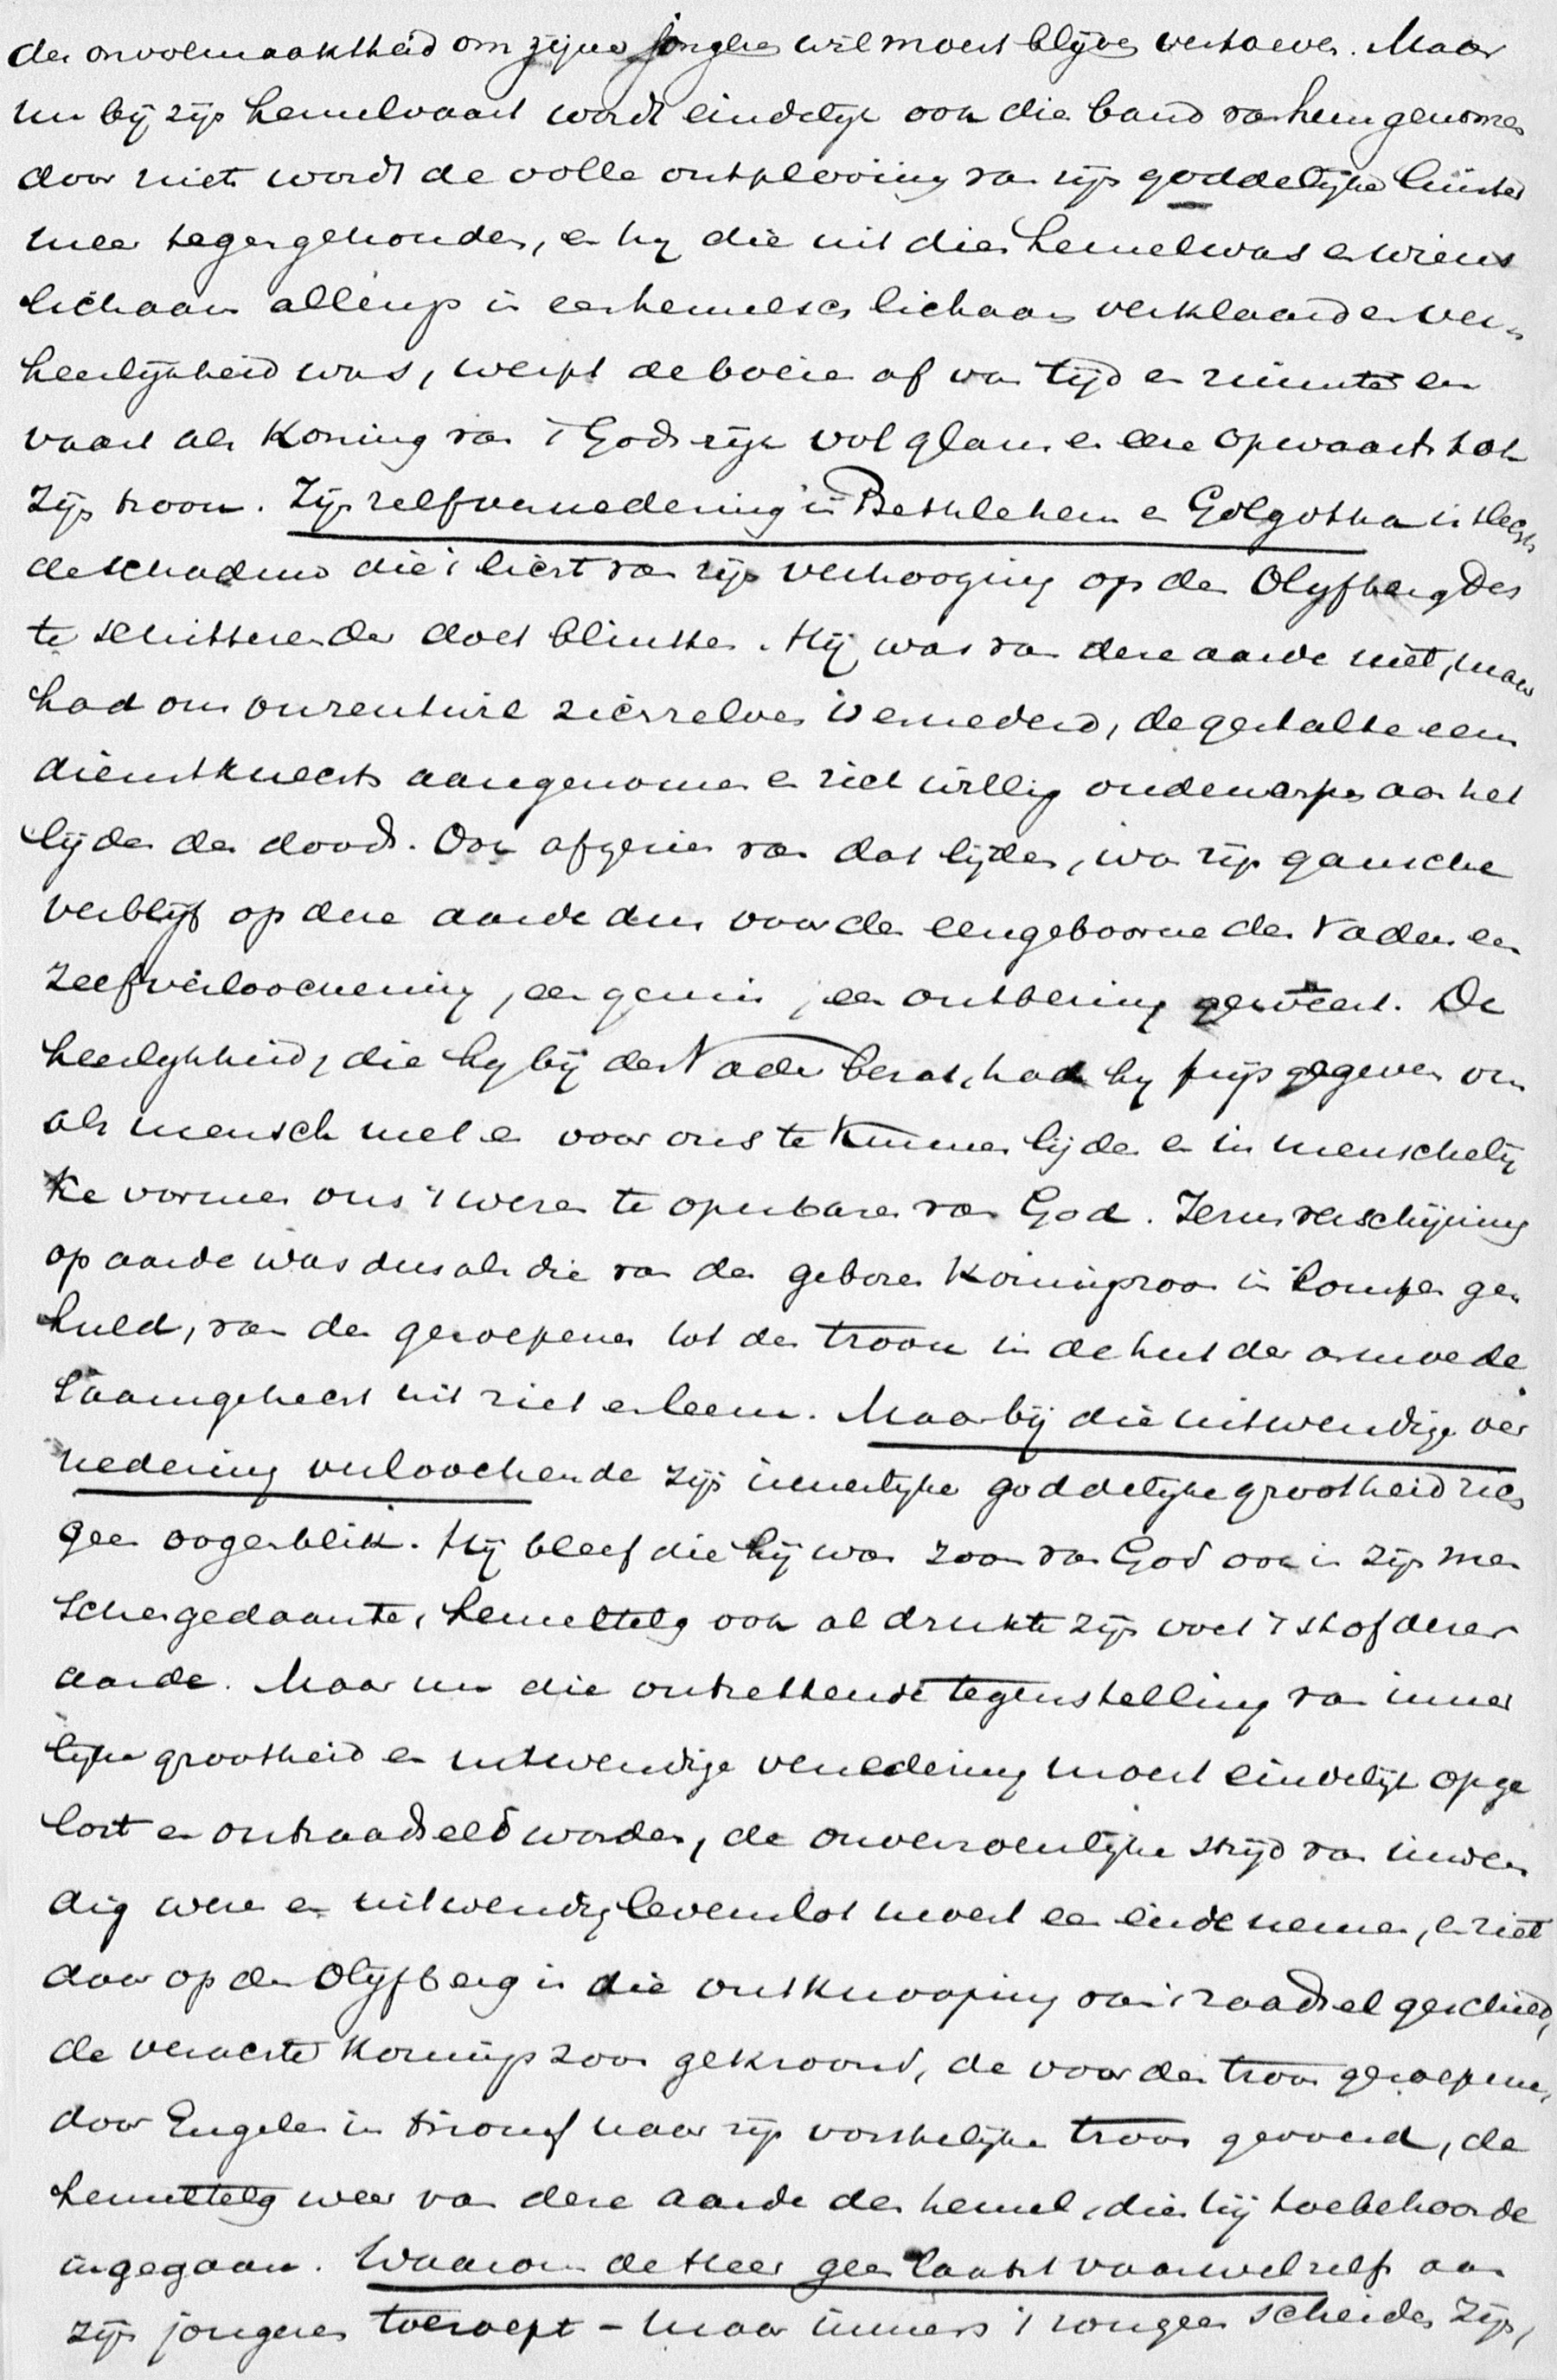 der onvolmaaktheid om zijner jongeren wil moest blijven vertoeven. Maar
nu bij zijn hemelvaart wordt eindelijk ook die band van hem genomen
door niets wordt de volle ontplooiing van zijn goddelijken luister
meer tegengehouden, en hij die uit dien hemel was en wiens
lichaam allengs in een hemelsch lichaam verklaard en ver-
heerlijkheid was, werpt de boeien af van tijd en ruimte en
vaart als Koning van 't Godsrijk vol glans en eere opwaarts tot
zijn troon. Zijn zelfvernedering in Bethlehem en Golgotha is slechts
de schaduw die 't licht van zijn verhooging op den Olijfberg des
te schitterender doet blinken. Hij was van deze aarde niet, maar
had om onzentwil zichzelven vernederd, de gestalte eens
dienstknechts aangenomen en zich willig onderworpen aan het
lijden des doods. Ook afgezien van dat lijden, was zijn gansche
verblijf op deze aarde dus voor den eengeboorne des Vaders een
zelfverloochening, een gemis, een ontbering geweest. De
heerlijkheid, die hij bij den Vader bezat, had hij prijs gegeven om
als mensch met en voor ons te kunnen lijden en in menschelij
ke vormen ons 't wezen te openbaren van God. Jezus verschijning
op aarde was dus als die van den geboren Koningszoon in lompen ge-
huld, van den geroepene tot den troon in de hut der armoede
saamgehecht uit riet en leem. Maar bij die uitwendige ver
nedering verloochende zijn innerlijke goddelijke grootheid zich
geen oogenblik. Hij bleef die hij was zoon van God ook in zijn men
schengedaante, hemeltelg ook al drukte zijn voet 't stof dezer
aarde. Maar nu die ontzettende tegenstelling van inner
lijke grootheid en uitwendige vernedering moest eindelijk opge
lost en ontraadseld worden, de onverzoenlijke strijd van inwen
dig wezen en uitwendig levenslot moest een einde nemen, en ziet
daar op den Olijfberg is die ontknooping van 't raadsel geschied,
de verachte Koningszoon gekroond, de voor den troon geroepene,
door Engelen in triomf naar zijn vorstelijken troon gevoerd, de
hemeltelg weer van deze aarde den hemel, dien hij toebehoorde
ingegaan. Waarom de Heer geen laatst vaarwel zelfs aan
zijn jongeren toeroept - maar immers 't zou geen scheiden zijn,